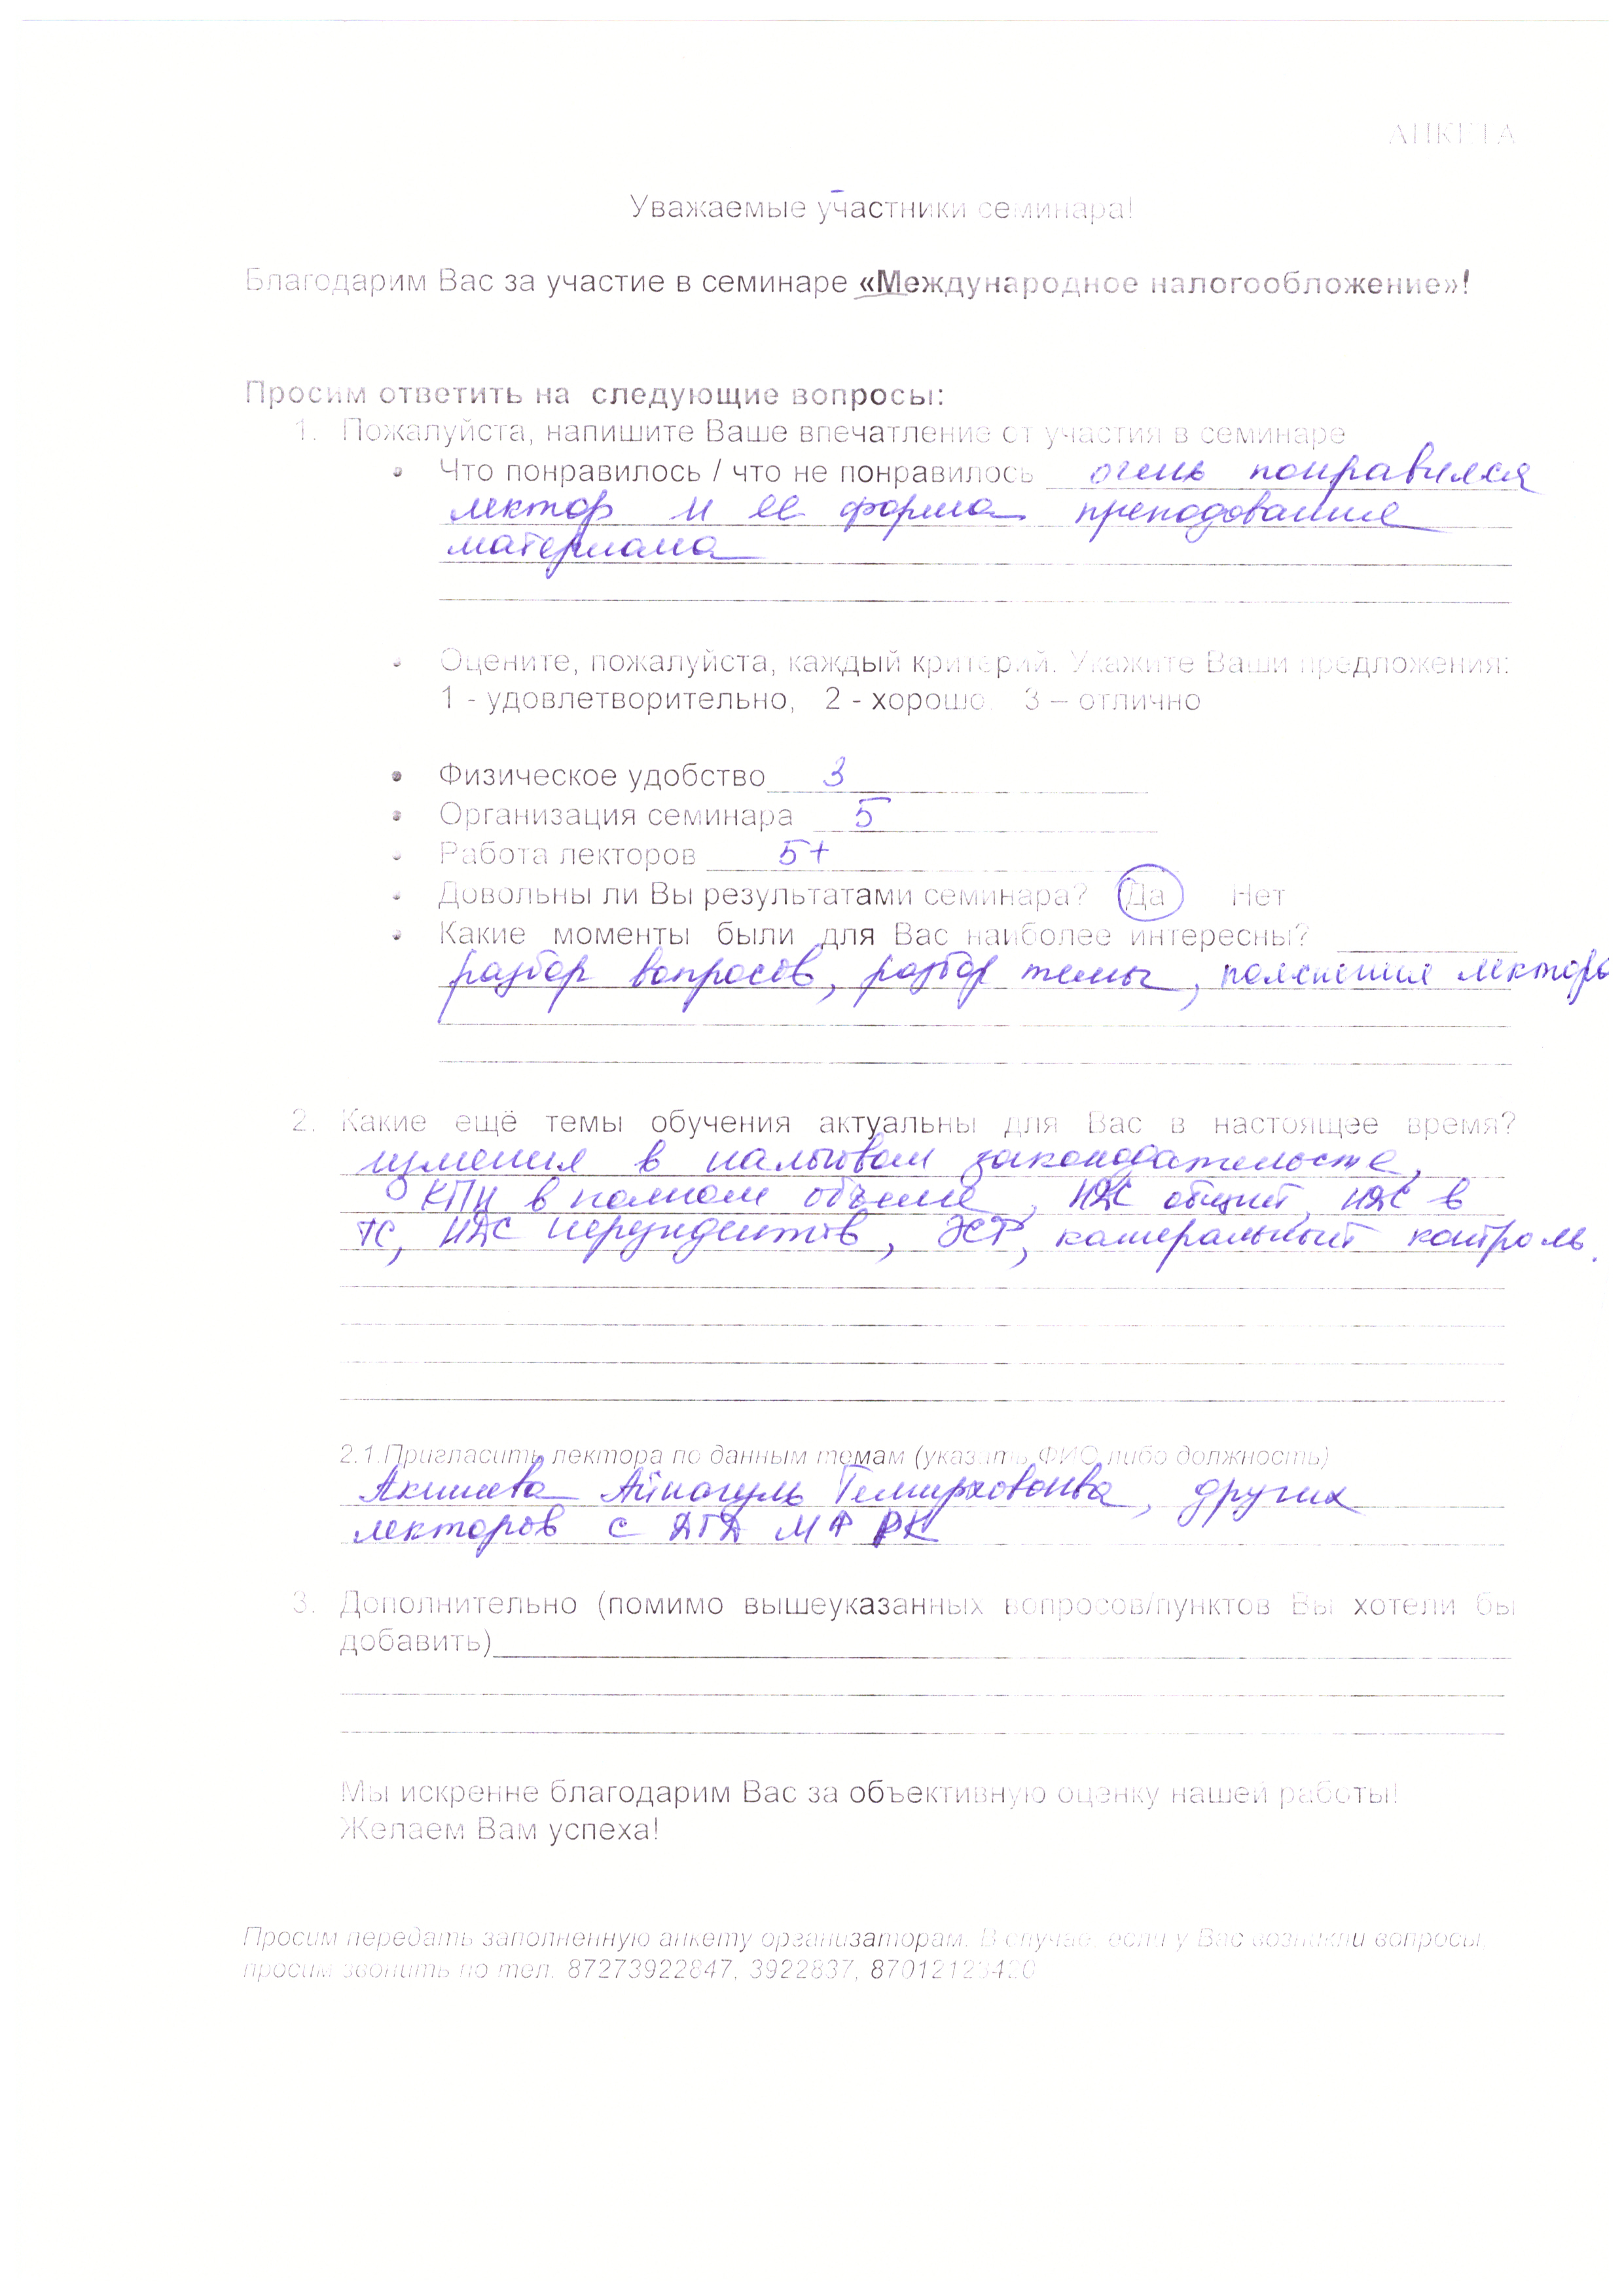 АНКЕТА
Уважаемые участники семинара!
Благодарим Вас за участие в семинаре «Международное налогообложение»!
Просим ответить на следующие вопросы:
1. Пожалуйста, напишите Ваше впечатление от участия в семинаре
• Что понравилось / что не понравилось очень понравился
лектор и ее форма преподование
материала
• Оцените, пожалуйста, каждый критерий. Укажите Ваши предложения:
1 - удовлетворительно, 2 - хорошо, 3 – отлично
• Физическое удобство 3
• Организация семинара 5
• Работа лекторов 5+
• Довольны ли Вы результатами семинара? Да Нет
• Какие моменты были для Вас наиболее интересны?
разбор вопросов, разбор темы, пояснения лектора
2. Какие ещё темы обучения актуальны для Вас в настоящее время?
в налоговом законодательстве,
КПН в полном объеме, НДС общий, НДС в
ТС, НДС нерезидентов, ЭСФ, камеральный контроль.
2.1.Пригласить лектора по данным темам (указать ФИО либо должность)
Айнагуль, других
лекторов с ДГД МФ РК
3. Дополнительно (помимо вышеуказанных вопросов/пунктов Вы хотели бы
добавить)
Мы искренне благодарим Вас за объективную оценку нашей работы!
Желаем Вам успеха!
Просим передать заполненную анкету организаторам. В случае, если у Вас возникли вопросы,
просим звонить по тел. 87273922847, 3922837, 87012123420